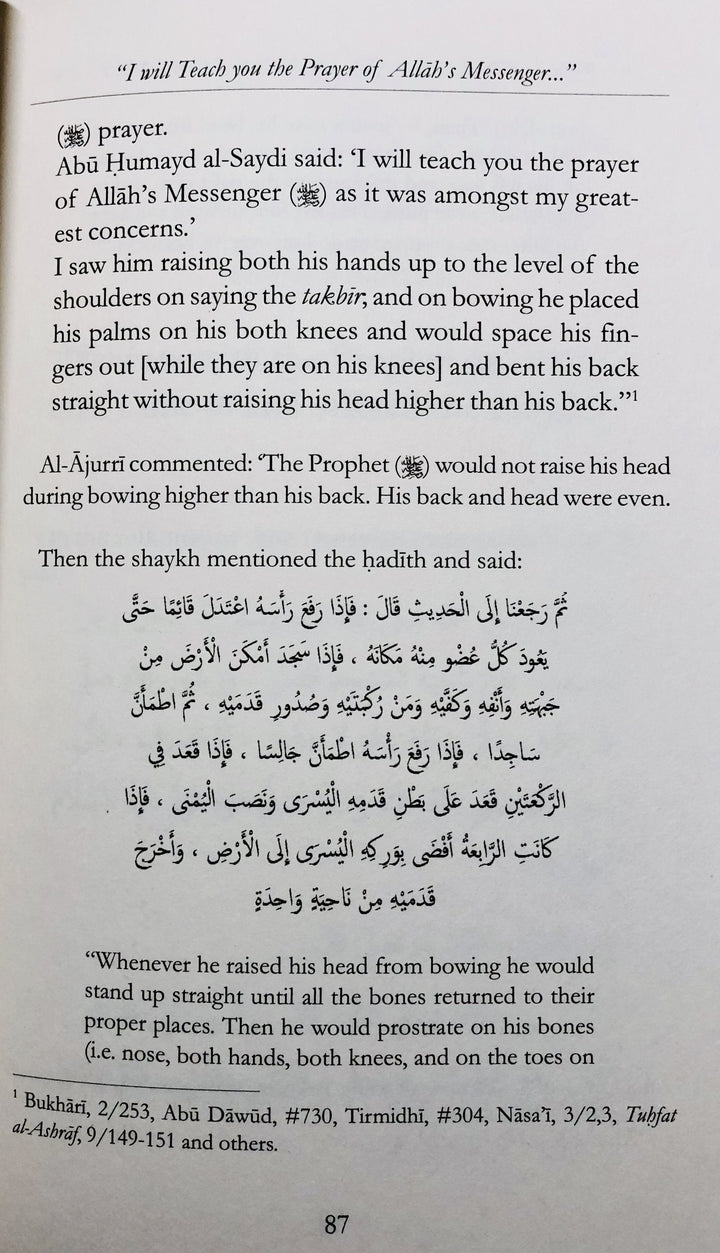 “I will Teach you the Prayer of Allāh’s Messenger...”
(ﷺ) prayer.
Abū Ḥumayd al-Saydi said: ‘I will teach you the prayer
of Allāh’s Messenger (ﷺ) as it was amongst my great-
est concerns.’
I saw him raising both his hands up to the level of the
shoulders on saying the takbīr; and on bowing he placed
his palms on his both knees and would space his fin-
gers out [while they are on his knees] and bent his back
straight without raising his head higher than his back.”¹
Al-Ājurrī commented: ‘The Prophet (ﷺ) would not raise his head
during bowing higher than his back. His back and head were even.
Then the shaykh mentioned the ḥadīth and said:
ثُمَّ رَجَعْنَا إِلَى الْحَدِيثِ قَالَ : فَإِذَا رَفَعَ رَأْسَهُ اعْتَدَلَ قَائِمًا حَتَّى
يَعُودَ كُلُّ عُضْوٍ مِنْهُ مَكَانَهُ ، فَإِذَا سَجَدَ أَمْكَنَ الْأَرْضَ مِنْ
جَبْهَتِهِ وَأَنْفِهِ وَكَفَّيْهِ وَمَنْ رُكْبَتَيْهِ وَصُدُورِ قَدَمَيْهِ ، ثُمَّ اطْمَأَنَّ
سَاجِدًا ، فَإِذَا رَفَعَ رَأْسَهُ اطْمَأَنَّ جَالِسًا ، فَإِذَا قَعَدَ فِي
الرَّكْعَتَيْنِ قَعَدَ عَلَى بَطْنِ قَدَمِهِ الْيُسْرَى وَنَصَبَ الْيُمْنَى ، فَإِذَا
كَانَتِ الرَّابِعَةُ أَفْضَى بِوَرِكِهِ الْيُسْرَى إِلَى الْأَرْضِ ، وَأَخْرَجَ
قَدَمَيْهِ مِنْ نَاحِيَةٍ وَاحِدَةٍ
“Whenever he raised his head from bowing he would
stand up straight until all the bones returned to their
proper places. Then he would prostrate on his bones
(i.e. nose, both hands, both knees, and on the toes on
¹ Bukhārī, 2/253, Abū Dāwūd, #730, Tirmidhī, #304, Nāsa’ī, 3/2,3, Tuḥfat
al-Ashrāf, 9/149-151 and others.
87